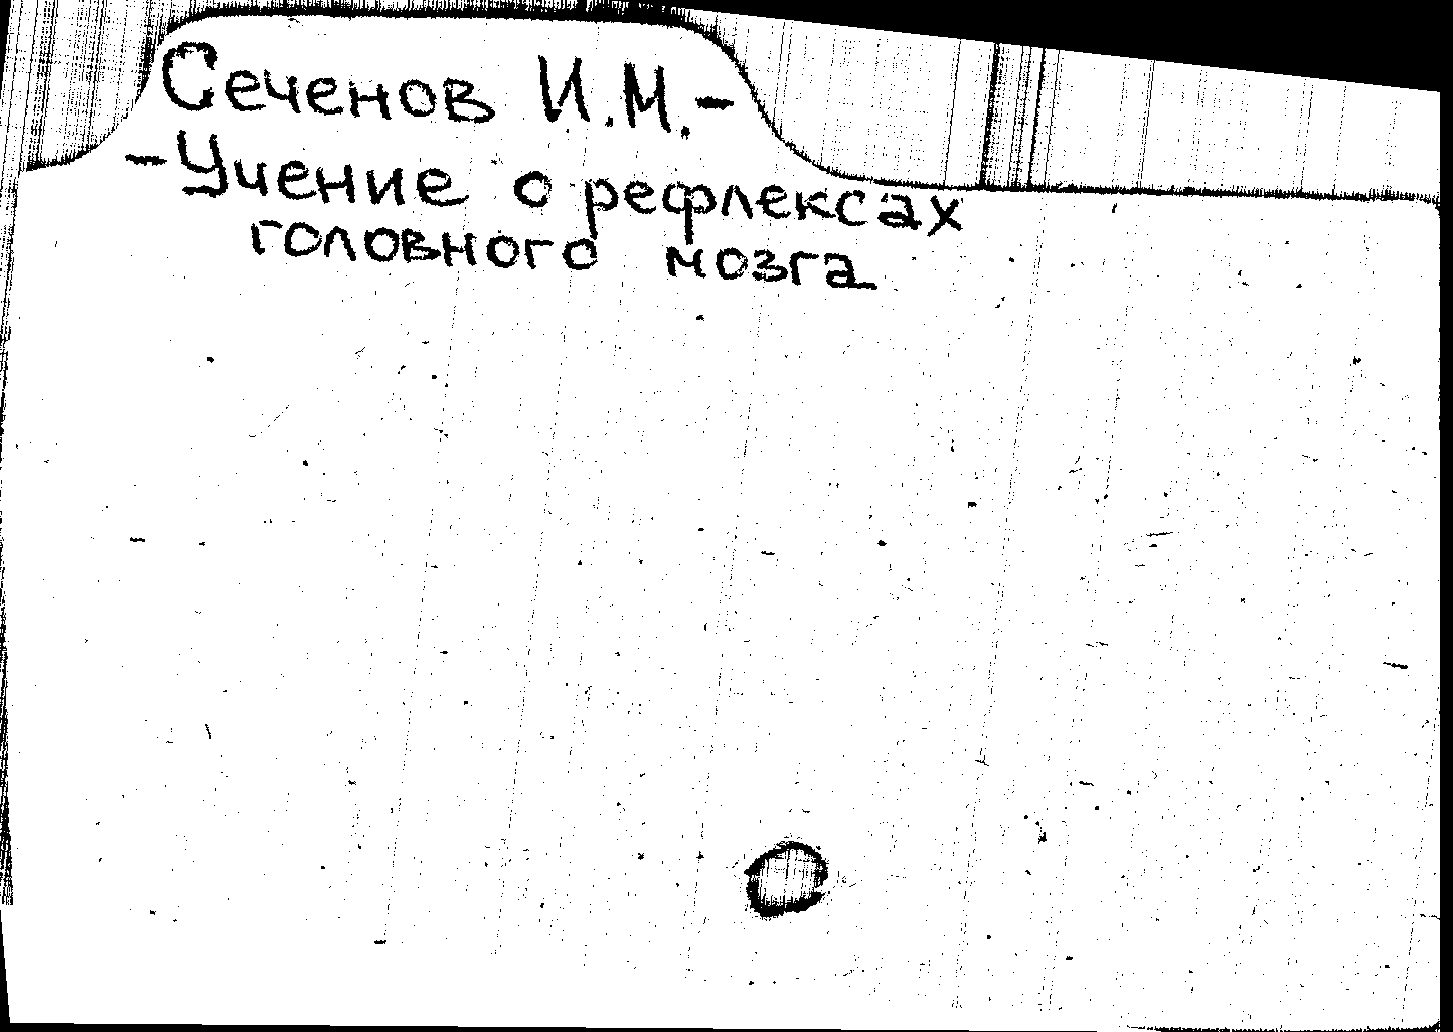 Сеченов И.М.-
-Учение о рефлексах
головного мозга